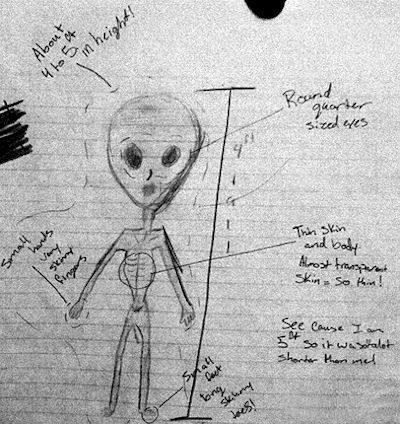 About
4 to 5 ft
in height!
Round
quarter
sized eyes
Small hands
very
skinny
fingers
Thin skin
and body
Almost transparent
Skin = So thin!
See cause I am
5 ft so it was a lot
shorter than me!
Small
feet
long
skinny
toes!